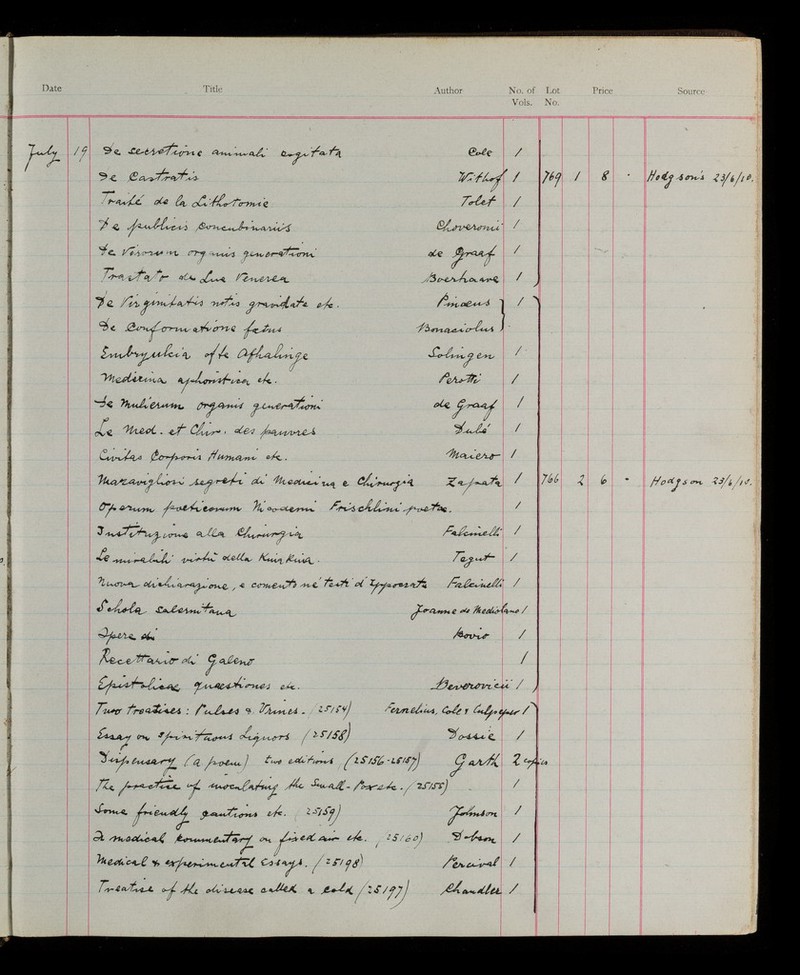 Date Title Author No. of Vols. Lot No. Price Source
July 19 De secretione animali cogitata Cole 1
De Castratis Withof 1 769 1 8 - Hodgson's 23/6/10.
Traité de la Lithotomie Tolet 1
De publicis concubinariis Choveronii 1
De Virorum organis generationi de Graaf 1
Tractatr de Lue Venerea Boerhaave 1
De Virginitatis notis graviditate etc. Pinaeus 1
De Conformatione foetus Bonaciolus
Embryulcia ofte Afhalinge Solingen 1
Medicina aphoristica etc. Perotti 1
De Mulierum organis generationi de Graaf 1
Le Med. et Chir. des pauvres Dubé 1
Civitas Corporis Humani etc. Maiero 1
Maravigliosi segreti di Medicina e Chirurgia Zapata 1 766 2 6 - Hodgson 23/6/10.
Operum poeticorum Nicodemi Frischlini poetae. 1
Instituzione alla Chirurgia Falcinelli 1
Le mirabili virtù della Kina Kina. Tegut 1
Nuova dichiarazione, e comenti ne testi d'Ippocrate Falcinelli 1
Schola salernitana Joanne de Mediolano 1
Opera di Bovio 1
Recettario di Galeno 1
Epistolicae quaestiones etc. Beverovicii 1
Two treatises: Pulses & Urines. (25154) Fernelius, Cole & Culpeper 1
Essay on Spirituous Liquors (25158) Dossie 1
Dispensary (a poem) two editions (25156-25157) Garth 2 copies
The practice of inoculating the Small-Pox etc. (25155) 1
Some friendly cautions etc. (25159) Johnson 1
A medical commentary on fixed air etc. (25160) Dobson 1
Medical & experimental Essays. (25198) Percival 1
Treatise of the disease called a cold (25197) Chandler 1